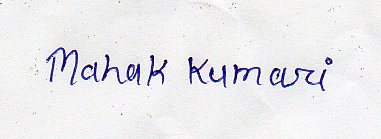 Mahak Kumari